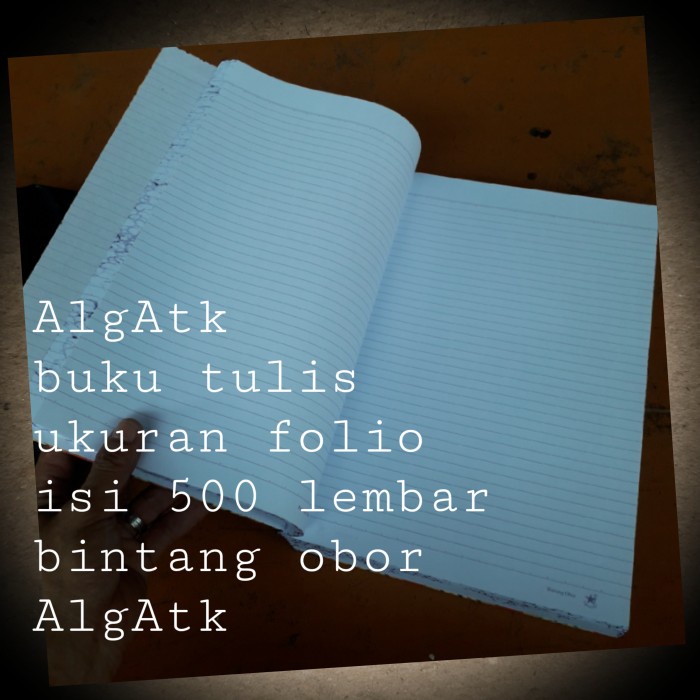 AlgAtk
buku tulis
ukuran folio
isi 500 lembar
bintang obor
AlgAtk